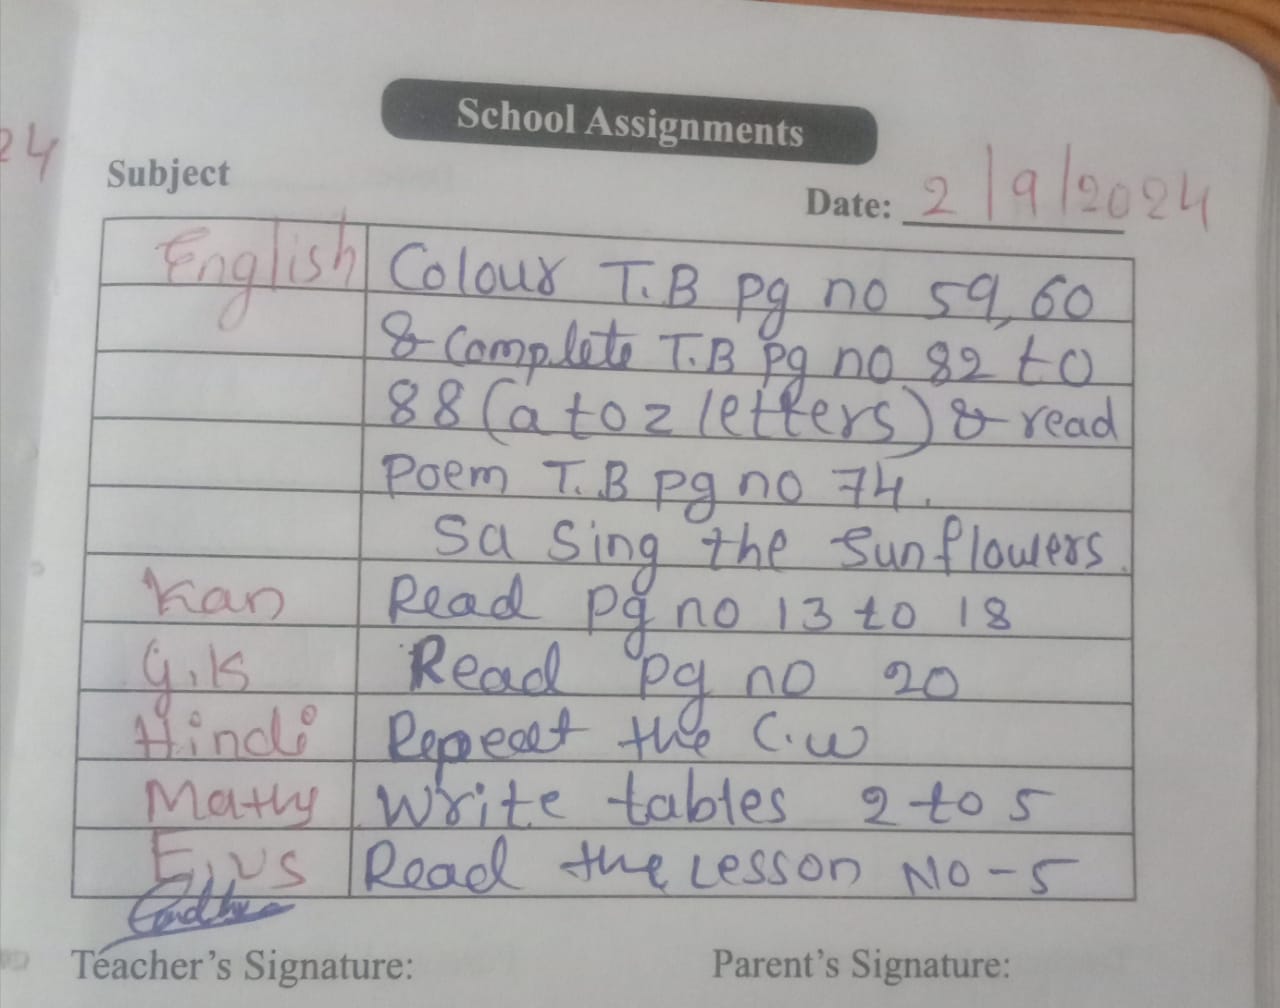 24
School Assignments
Subject
Date: 2/9/2024
English Colour T.B pg no 59, 60
& complete T.B pg no 82 to
88 (a to z letters) & read
Poem T.B pg no 74.
Sa Sing the Sunflowers.
Kan Read pg no 13 to 18
G.K Read pg no 20
Hindi Repeat the C.W
Maths Write tables 2 to 5
E.VS Read the Lesson NO-5
Teacher's Signature:
Parent's Signature: